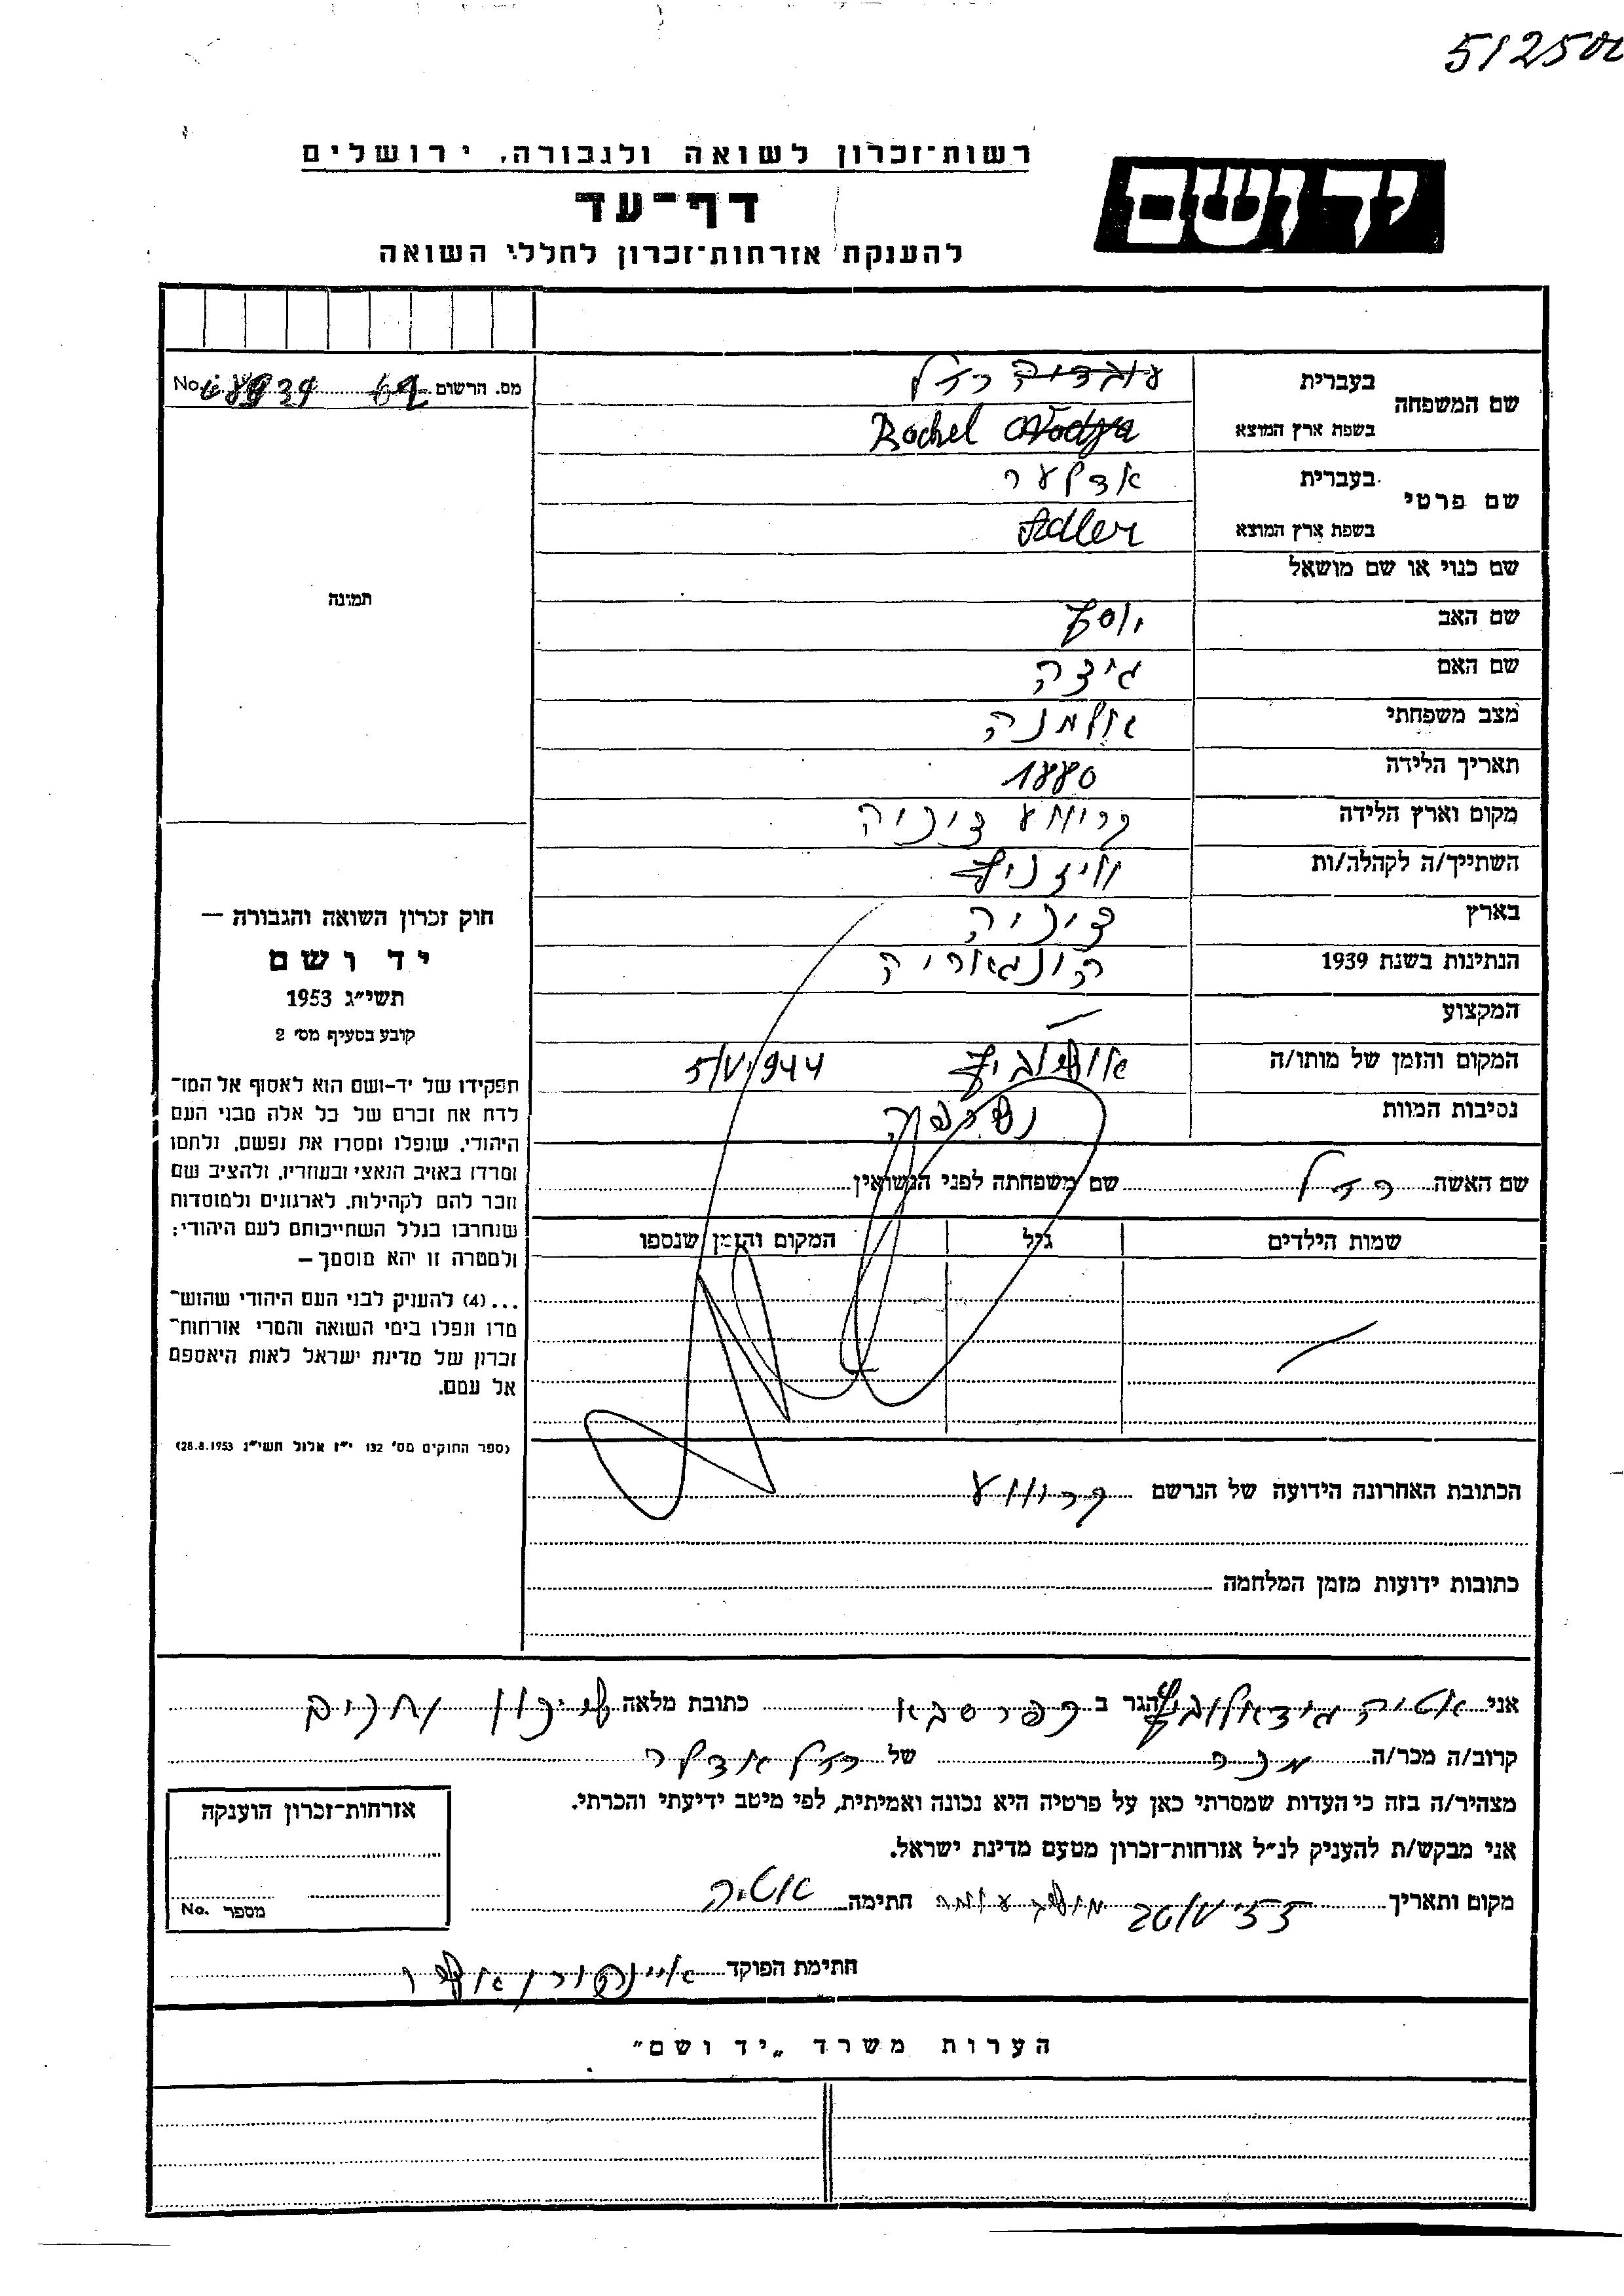 512500
רשות-זכרון לשואה ולגבורה, ירושלים
יד ושם
דף-עד
להענקת אזרחות-זכרון לחללי השואה
מס. הרשום No.
שם המשפחה
בעברית עובדיה רחל
בשפת ארץ המוצא Rochel
שם פרטי
בעברית אדלער
בשפת ארץ המוצא Adler
שם כנוי או שם מושאל
תמונה
שם האב יוסף
שם האם גיצה
מצב משפחתי אלמנה
תאריך הלידה 1880
מקום וארץ הלידה
השתייך/ה לקהלה/ות
בארץ
הנתינות בשנת 1939 הונגאריה
המקצוע
המקום והזמן של מותו/ה אושוביץ 5/V/944
נסיבות המוות נשרפה
שם האשה רחל שם משפחתה לפני הנשואין
שמות הילדים גיל המקום והזמן שנספו
חוק זכרון השואה והגבורה —
יד ושם
תשי״ג 1953
קובע בסעיף מס׳ 2
תפקידו של יד-ושם הוא לאסוף אל המו־
לדת את זכרם של כל אלה מבני העם
היהודי, שנפלו ומסרו את נפשם, נלחמו
ומרדו באויב הנאצי ובעוזריו, ולהציב שם
וזכר להם לקהילות, לארגונים ולמוסדות
שנחרבו בגלל השתייכותם לעם היהודי;
ולמטרה זו יהא מוסמך –
...(4) להעניק לבני העם היהודי שהוש־
מדו ונפלו בימי השואה והמרי אזרחות־
זכרון של מדינת ישראל לאות היאספם
אל עמם.
(ספר החוקים מס׳ 132 י״ז אלול תשי״ג 28.8.1953)
הכתובת האחרונה הידועה של הנרשם
כתובות ידועות מזמן המלחמה
אני הגר ב כפר סבא כתובת מלאה שיכון
קרוב/ה מכר/ה מכר של רחל אדלער
מצהיר/ה בזה כי העדות שמסרתי כאן על פרטיה היא נכונה ואמיתית, לפי מיטב ידיעתי והכרתי.
אני מבקש/ת להעניק לנ״ל אזרחות-זכרון מטעם מדינת ישראל.
מקום ותאריך חתימה
חתימת הפוקד
אזרחות-זכרון הוענקה
מספר No.
הערות משרד „יד ושם״